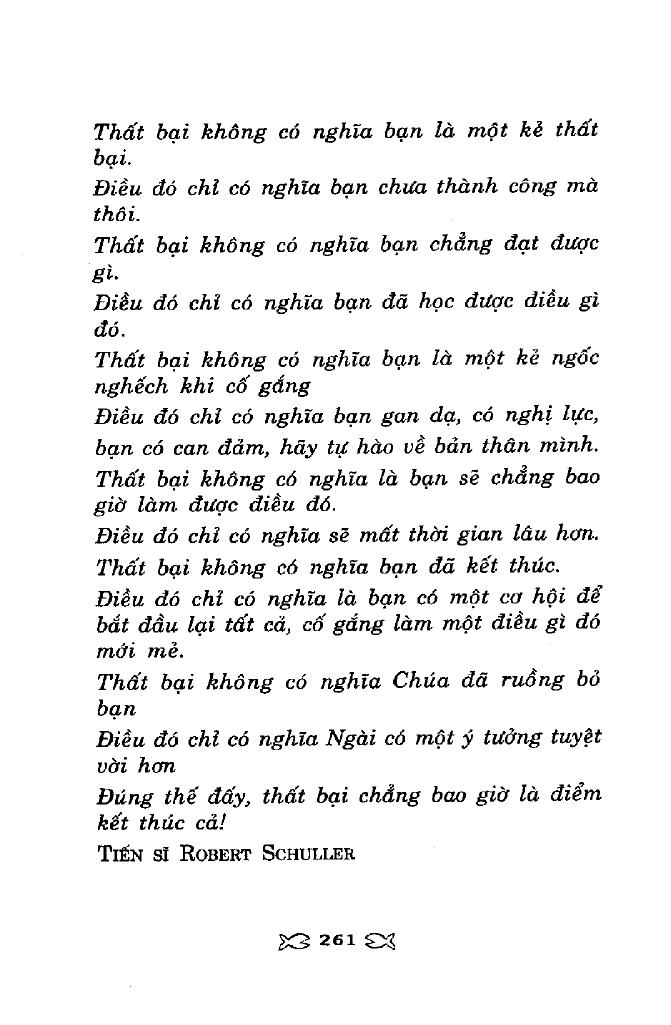 Thất bại không có nghĩa bạn là một kẻ thất
bại.
Điều đó chỉ có nghĩa bạn chưa thành công mà
thôi.
Thất bại không có nghĩa bạn chẳng đạt được
gì.
Điều đó chỉ có nghĩa bạn đã học được điều gì
đó.
Thất bại không có nghĩa bạn là một kẻ ngốc
nghếch khi cố gắng
Điều đó chỉ có nghĩa bạn gan dạ, có nghị lực,
bạn có can đảm, hãy tự hào về bản thân mình.
Thất bại không có nghĩa là bạn sẽ chẳng bao
giờ làm được điều đó.
Điều đó chỉ có nghĩa sẽ mất thời gian lâu hơn.
Thất bại không có nghĩa bạn đã kết thúc.
Điều đó chỉ có nghĩa là bạn có một cơ hội để
bắt đầu lại tất cả, cố gắng làm một điều gì đó
mới mẻ.
Thất bại không có nghĩa Chúa đã ruồng bỏ
bạn
Điều đó chỉ có nghĩa Ngài có một ý tưởng tuyệt
vời hơn
Đúng thế đấy, thất bại chẳng bao giờ là điểm
kết thúc cả!
TIẾN SĨ ROBERT SCHULLER
261